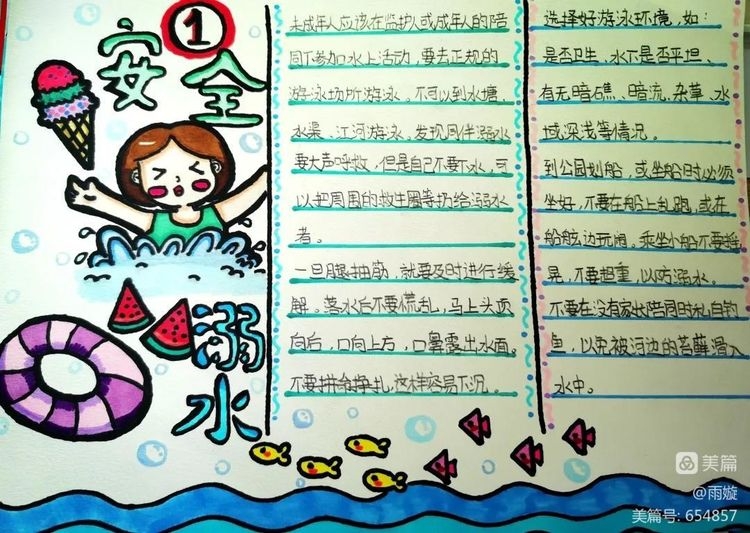 ①
安全
溺水
未成年人应该在监护人或成年人的陪
同下参加水上活动，要去正规的
游泳场所游泳。不可以到水塘、
水渠、江河游泳。发现同伴溺水
要大声呼救，但是自己不要下水，可
以把周围的救生圈等扔给溺水
者。
一旦腿抽筋，就要及时进行缓
解。落水后不要慌乱，马上头顶
向后，口向上方，口鼻露出水面。
不要拼命挣扎，这样容易下沉。
选择好游泳环境，如：
是否卫生，水下是否平坦、
有无暗礁、暗流、杂草、水
域深浅等情况。
到公园划船，或坐船时必须
坐好，不要在船上乱跑，或在
船舷边玩闹，乘坐小船不要摇
晃，不要超重，以防溺水。
不要在没有家长陪同时私自钓
鱼，以免被河边的苔藓滑入
水中。
美篇
@雨璇
美篇号: 654857